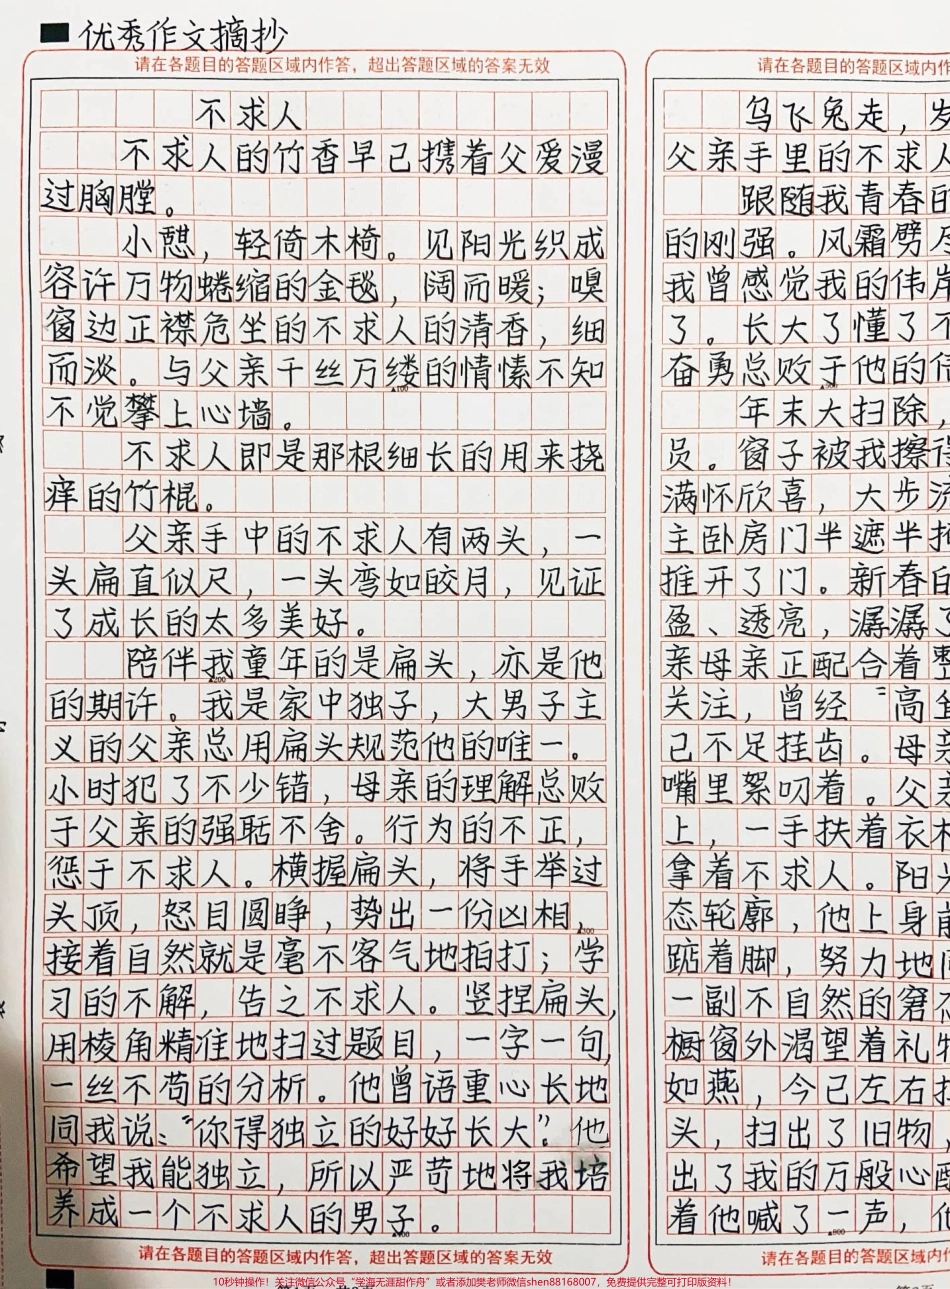 优秀作文摘抄
请在各题目的答题区域内作答，超出答题区域的答案无效
不求人
不求人的竹香早已携着父爱漫
过胸膛。
小憩，轻倚木椅。见阳光织成
容许万物蜷缩的金毯，阔而暖；嗅
窗边正襟危坐的不求人的清香，细
而淡。与父亲千丝万缕的情愫不知
▲100
不觉攀上心墙。
不求人即是那根细长的用来挠
痒的竹棍。
父亲手中的不求人有两头，一
头扁直似尺，一头弯如皎月，见证
了成长的太多美好。
陪伴我童年的是扁头，亦是他
▲200
的期许。我是家中独子，大男子主
义的父亲总用扁头规范他的唯一。
小时犯了不少错，母亲的理解总败
于父亲的强聒不舍。行为的不正，
惩于不求人。横握扁头，将手举过
头顶，怒目圆睁，势出一份凶相，
▲300
接着自然就是毫不客气地拍打；学
习的不解，告之不求人。竖捏扁头，
用棱角精准地扫过题目，一字一句，
一丝不苟的分析。他曾语重心长地
同我说：“你得独立的好好长大”。他
希望我能独立，所以严苛地将我培
养成一个不求人的男子。
▲400
请在各题目的答题区域内作答，超出答题区域的答案无效
请在各题目的答题区域内作
乌飞兔走，岁
父亲手里的不求人
跟随我青春的
的刚强。风霜劈尽
我曾感觉我的伟岸
了。长大了懂了不
奋勇总败于他的倍
年末大扫除，
员。窗子被我擦得
满怀欣喜，大步流
主卧房门半遮半掩
推开了门。新春的
盈、透亮，潺潺了
亲母亲正配合着整
关注，曾经“高
己不足挂齿。母亲
嘴里絮叨着。父亲
上，一手扶着衣柜
拿着不求人。阳光
态轮廓，他上身前
踮着脚，努力地向
一副不自然的窘态
橱窗外渴望着礼物
如燕，今已左右
头，扫出了旧物，
出了我的万般心酸
着他喊了一声，他
▲800
请在各题目的答题区域内作
10秒钟操作！关注微信公众号“学海无涯甜作舟”或者添加樊老师微信shen88168007，免费提供完整可打印版资料！